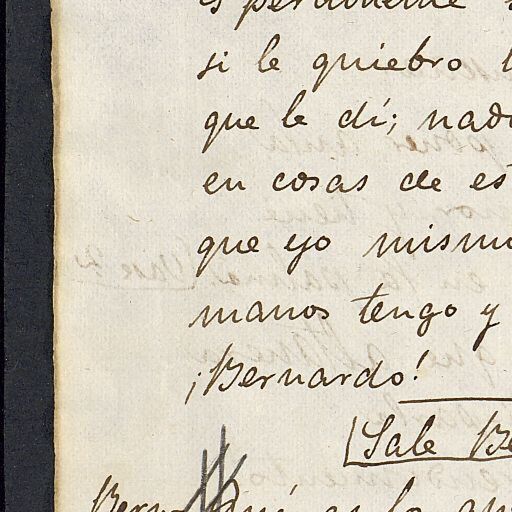 si le quiebro
que le dí; nad
en cosas de es
que yo mismo
manos tengo y
¡Bernardo!
Sale Be
Bern